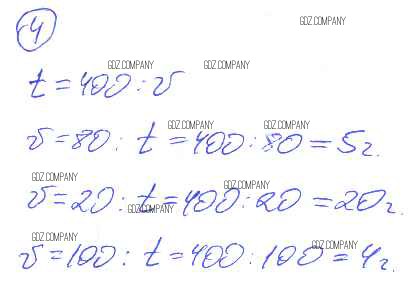 GDZ.COMPANY
4
GDZ.COMPANY GDZ.COMPANY
t = 400 : v
GDZ.COMPANY GDZ.COMPANY
v = 80 : t = 400 : 80 = 5ч.
GDZ.COMPANY GDZ.COMPANY
v = 20 : t = 400 : 20 = 20ч.
GDZ.COMPANY
GDZ.COMPANY GDZ.COMPANY
v = 100 : t = 400 : 100 = 4ч.